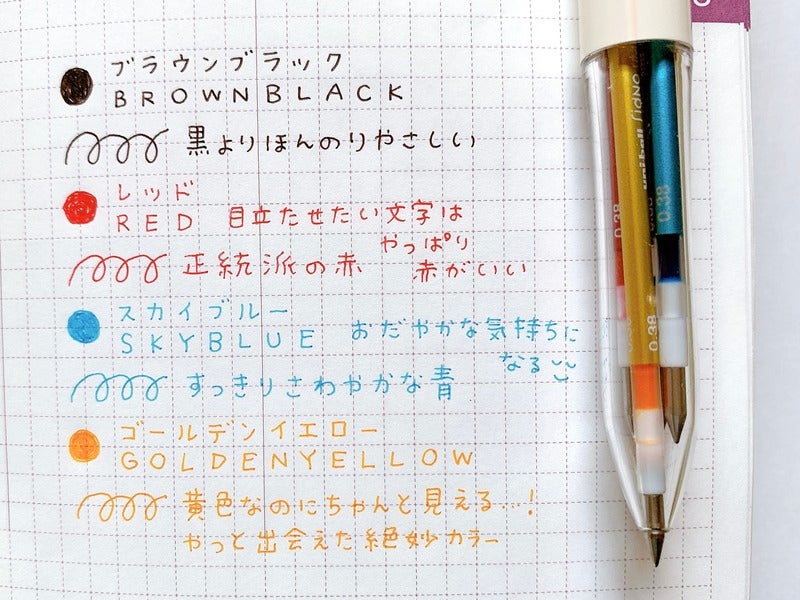 ブラウンブラック
BROWNBLACK
黒よりほんのりやさしい
レッド
RED
目立たせたい文字は
やっぱり
赤がいい
正統派の赤
スカイブルー
SKYBLUE
おだやかな気持ちに
なる
すっきりさわやかな青
ゴールデンイエロー
GOLDENYELLOW
黄色なのにちゃんと見える…!
やっと出会えた絶妙カラー
0.38
0.38
0.38
uni-ball